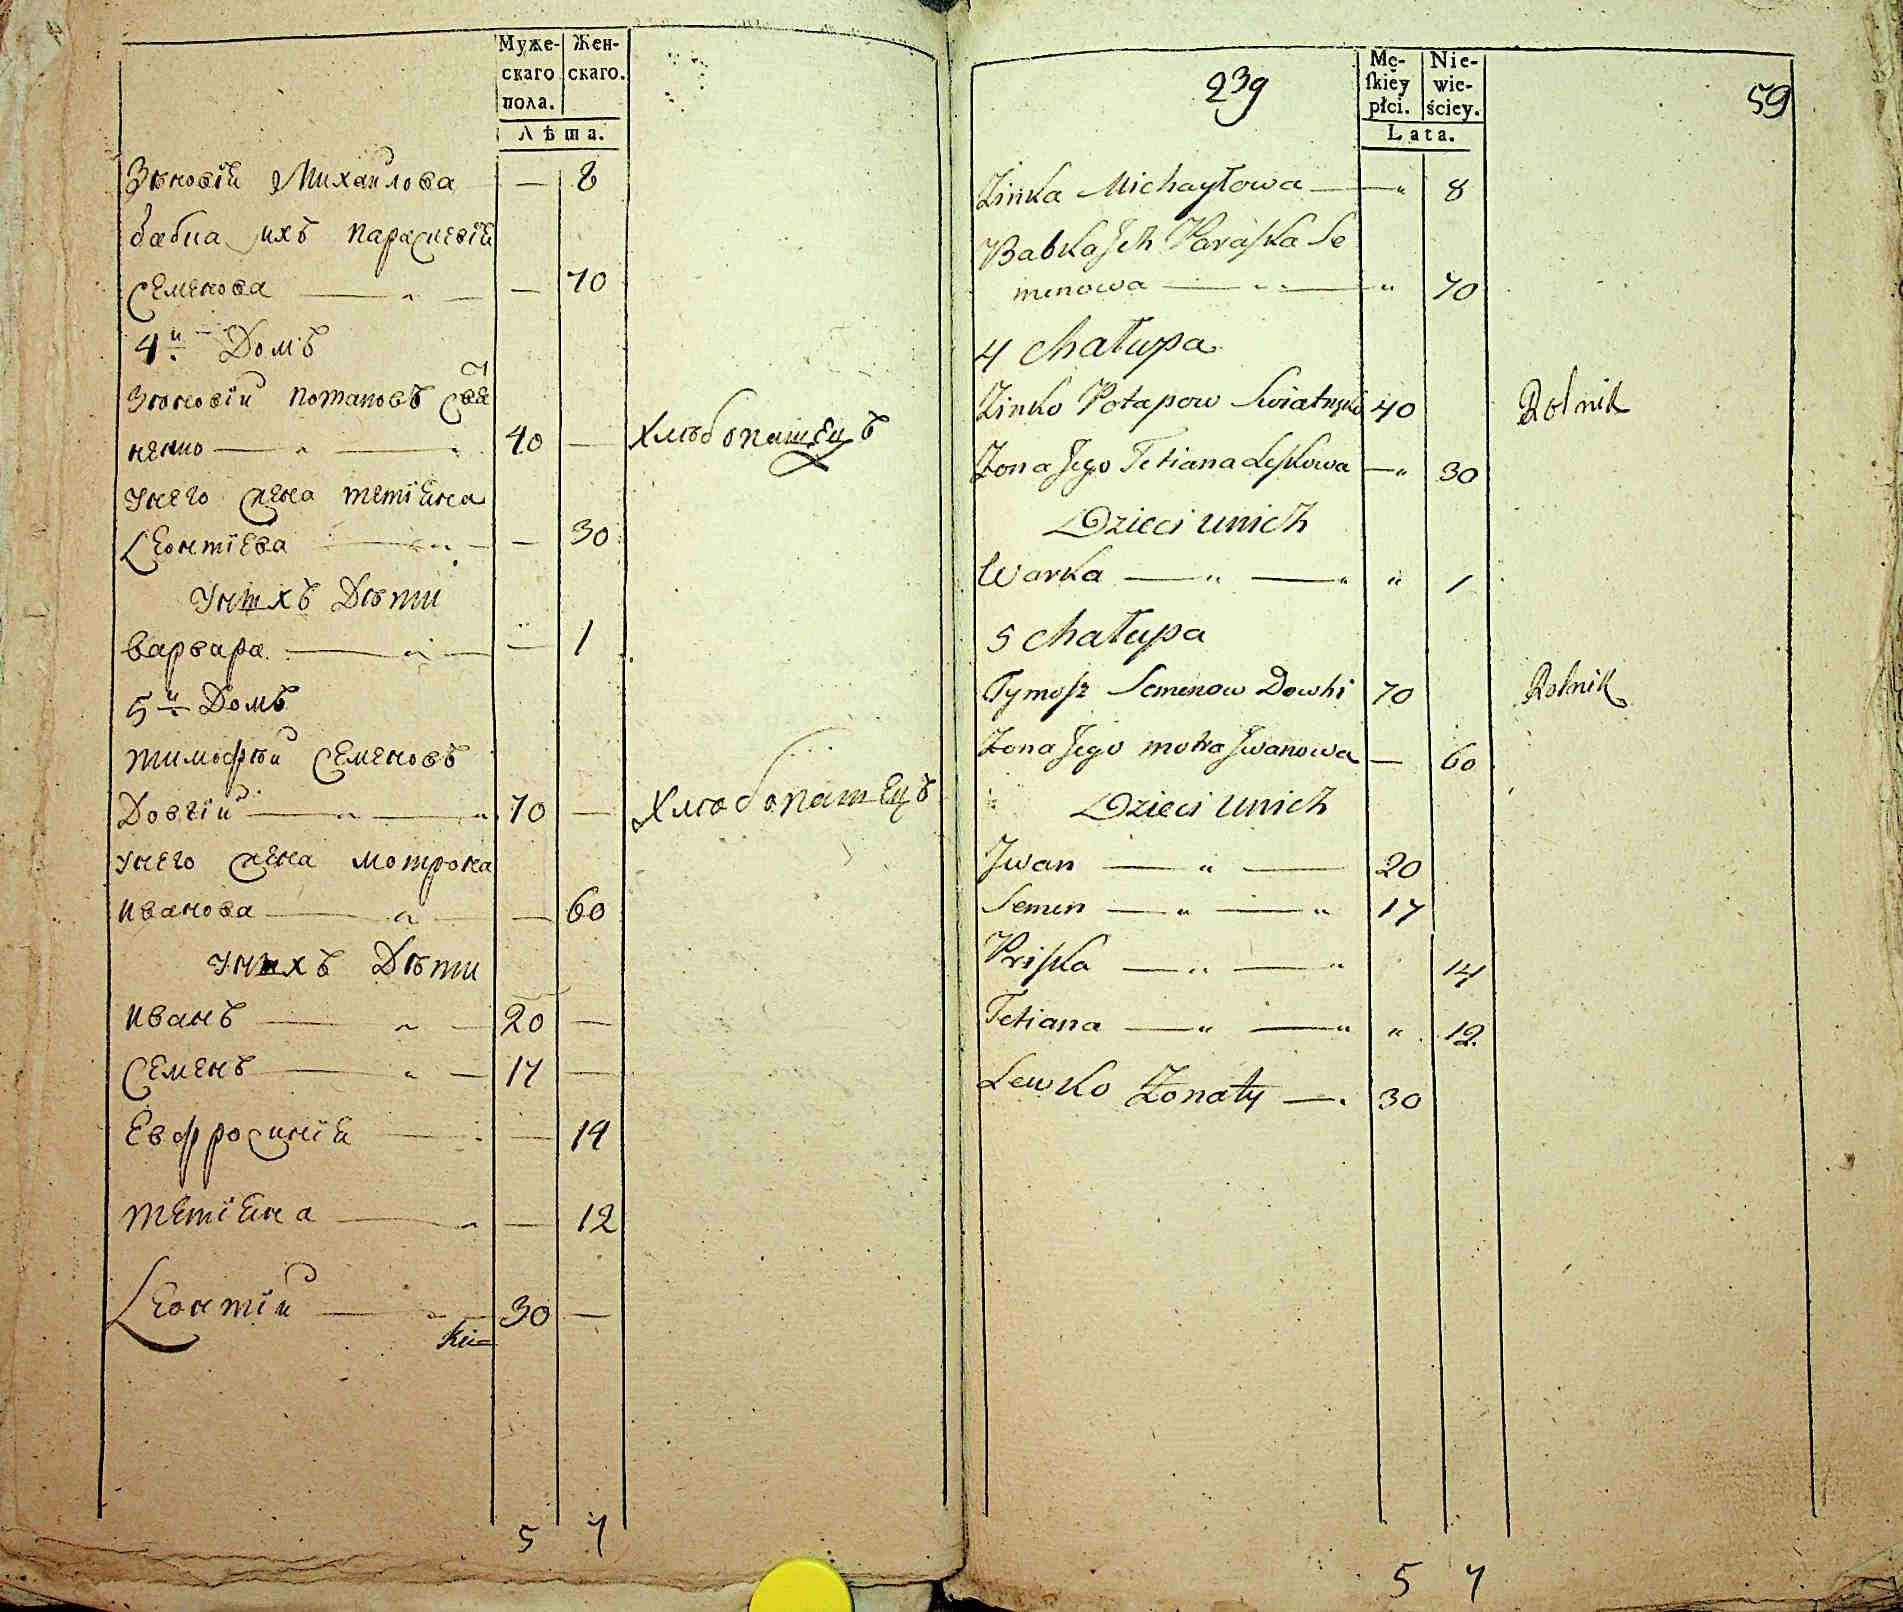 Муже-
скаго
пола.
Жен-
скаго.
Лѣта.
Зѣновія Михайлова — 8
бабка ихъ Параскевія
Семенова — 70
4й Домъ
Зѣновій Потаповъ Свят
ненко — 40 — Хлѣбопашецъ
У него жена Тетіана
Леонтіева — 30
У нихъ Дѣти
Варвара — 1
5й Домъ
Тимофѣй Семеновъ
Довгій — 70 — Хлѣбопашецъ
У него жена Мотрона
Иванова — 60
У нихъ Дѣти
Иванъ — 20 —
Семенъ — 17 —
Евфросинія — 14
Тетіана — 12
Леонтій — 30 —
5 7
239
Mę-
ſkiéy
płci.
Nie-
wie-
ściey.
Lata.
59
Zinka Michayłowa — " 8
Babka Jch Paraſka Se
menowa — " 70
4 Chałupa
Zinko Potapow 40 Rolnik
Zona Jego Tetiana Leſkowa — " 30
Dzieci unich
Warka — " — " " 1
5 Chałupa
Tymoſz Semenow Dowhi 70 Rolnik
Zona Jego motra Jwanowa — 60
Dzieci unich
Jwan — " — 20
Semen — " — " 17
Priſka — " — " 14
Tetiana — " — " " 12
Lewko Żonaty — . 30
5 7